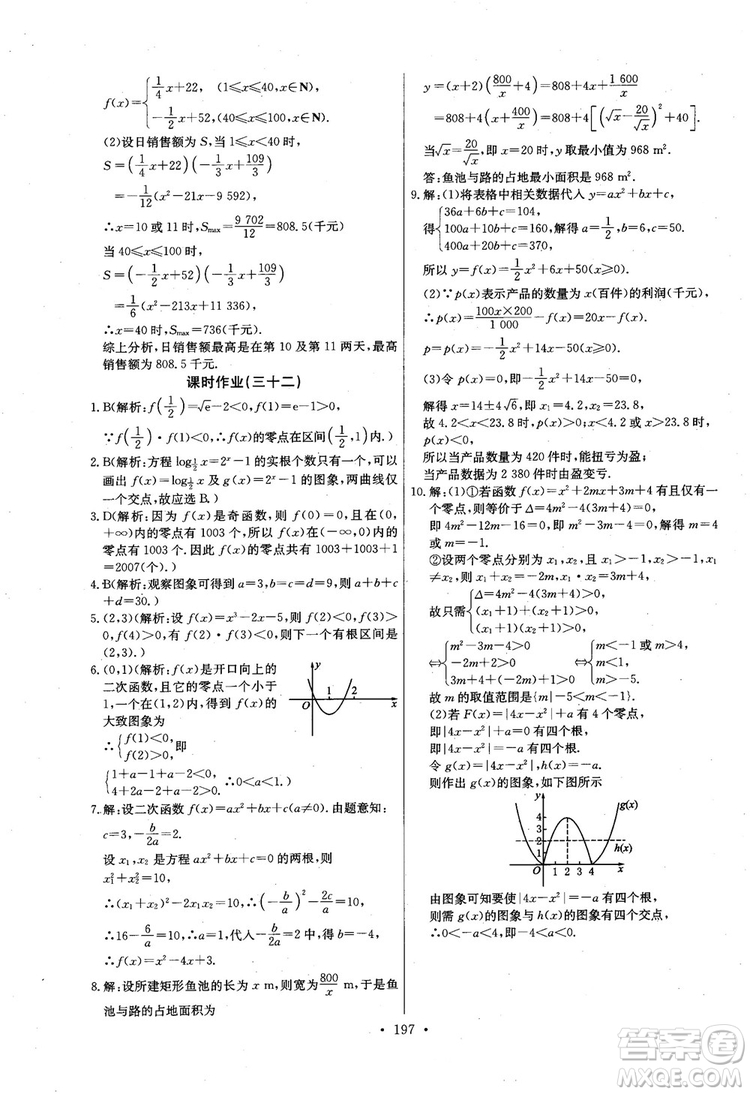 f(x)={ 1/4 x+22, (1≤x≤40,x∈N)
-1/2 x+52,(40≤x≤100,x∈N)
(2)设日销售额为 S,当 1≤x≤40 时,
S=(1/4 x+22)(-1/3 x+109/3)
=-1/12(x²-21x-9 592),
∴x=10 或 11 时,Smax=9 702/12=808.5(千元)
当 40≤x≤100 时,
S=(-1/2 x+52)(-1/3 x+109/3)
=1/6(x²-213x+11 336),
∴x=40 时,Smax=736(千元).
综上分析,日销售额最高是在第 10 及第 11 两天,最高
销售额为 808.5 千元.
课时作业(三十二)
1. B(解析:f(1/2)=√e-2<0,f(1)=e-1>0,
∵f(1/2)·f(1)<0,∴f(x)的零点在区间(1/2,1)内.)
2. B(解析:方程 log1/2 x=2ˣ-1 的实根个数只有一个,可以画出
f(x)=log1/2 x 及 g(x)=2ˣ-1 的图象,两曲线仅
一个交点,故应选 B.)
3. D(解析:因为 f(x)是奇函数,所以 f(0)=0,在(0,
+∞)内的零点有 1003 个,所以 f(x)在(-∞,0)内的
零点有 1003 个.因此 f(x)的零点共有 1003+1003+1
=2007(个).)
4. B(解析:观察图象可得到 a=3,b=c=d=9,则 a+b+c
+d=30.)
5. (2,3)(解析:设 f(x)=x³-2x-5,则 f(2)<0,f(3)
>0,f(4)>0,有 f(2)f(3)<0,则下一个有根区间是
(2,3).)
6. (0,1)(解析:f(x)是开口向上的
二次函数,且它的零点一个小于
1,一个在(1,2)内,则得 f(x)的
大致图象为
y
O 1 2 x
∴{f(1)<0,
f(2)>0,即
{1+a-1-2<0,
4+2a-2-2>0,∴0<a<1.)
7. 解:设二次函数 f(x)=ax²+bx+c(a≠0).由题意知:
c=3,-b/2a=2.
设 x₁,x₂ 是方程 ax²+bx+c=0 的两根,则
x₁²+x₂²=10,
∴(x₁+x₂)²-2x₁x₂=10,∴(-b/a)²-2c/a=10,
∴16-6/a=10,∴a=1,代入-b/2a=2 中,得 b=-4,
∴f(x)=x²-4x+3.
8. 解:设所建矩形鱼池的长为 x m,则宽为 800/x m,于是鱼
池与路的占地面积为
y=(x+2)(800/x+4)=808+4x+1 600/x
=808+4(x+400/x)=808+4[(√x-20/√x)²+40].
当√x=20/√x,即 x=20 时,y 取最小值为 968 m².
答:鱼池与路的占地最小面积是 968 m².
9. 解:(1)将表格中相关数据代入 y=ax²+bx+c,
得{36a+6b+c=104,
100a+10b+c=160,解得 a=1/2,b=6,c=50.
400a+20b+c=370
所以 y=f(x)=1/2 x²+6x+50(x≥0).
(2)∵p(x)表示产品的数量为 x(百件)的利润(千元),
∴p(x)=100x×200/1 000-f(x)(x≥0),
p=p(x)=-1/2 x²+14x-50(x≥0).
(3)令 p(x)=0,即-1/2 x²+14x-50=0,
解得 x=14±4√6,即 x₁=4.2,x₂=23.8,
故 4.2<x<23.8 时,p(x)>0;x<4.2 或 x>23.8 时,
p(x)<0,
所以当产品数量为 420 件时,能扭亏为盈;
当产品数据为 2 380 件时由盈变亏.
10. 解:(1)①若函数 f(x)=x²+2mx+3m+4 有且仅有一个零
点,则等价于 Δ=4m²-4(3m+4)=0,
即 4m²-12m-16=0,即 m²-3m-4=0,
解得 m=4 或 m=-1.
②设两个零点分别为 x₁,x₂,且 x₁>-1,x₂>-1,x₁
≠x₂,则 x₁+x₂=-2m,x₁·x₂=3m+4,
故只需{Δ=4m²-4(3m+4)>0,
(x₁+1)+(x₂+1)>0,
(x₁+1)(x₂+1)>0
⇔{m²-3m-4>0,
-2m+2>0,
3m+4+(-2m)+1>0
⇔{m<-1 或 m>4,
m<1,
m>-5.
故 m 的取值范围是{m|-5<m<-1}.
(2)若 F(x)=|4x-x²|+a 有 4 个零点,
即|4x-x²|+a=0 有四个根,
即|4x-x²|=-a 有四个根,
令 g(x)=|4x-x²|,h(x)=-a.
则作出 g(x)的图象,如下图所示
y
g(x)
4
3
2
1
h(x)
O 1 2 3 4 x
由图象可知要使|4x-x²|=-a 有四个根,
则需 g(x)的图象与 h(x)的图象有四个交点,
∴0<-a<4,即-4<a<0.
• 197 •
答案圈